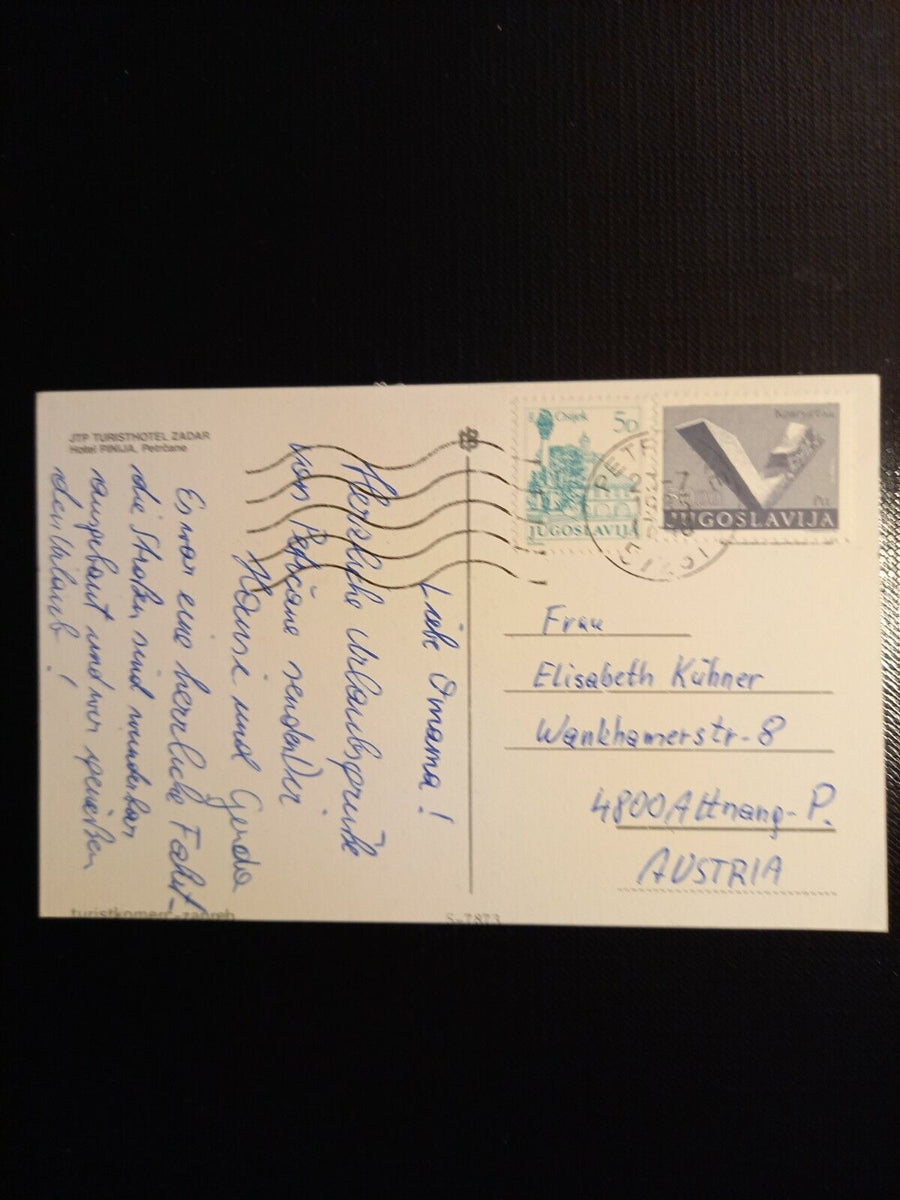 JTP TURISTHOTEL ZADAR
Hotel PINIJA, Petrčane
Liebe Omama!
Herzliche Urlaubsgrüße
von Petrčane senden Dir
und Gerda
Es war eine herrliche Fahrt -
die Straßen sind wunderbar
ausgebaut und wir genießen
den Urlaub!
turistkomerc-zagreb
S-7873
Osijek 50
JUGOSLAVIJA
JUGOSLAVIJA
Frau
Elisabeth Kühner
Wankhamerstr-8
4800 Attnang-P.
AUSTRIA